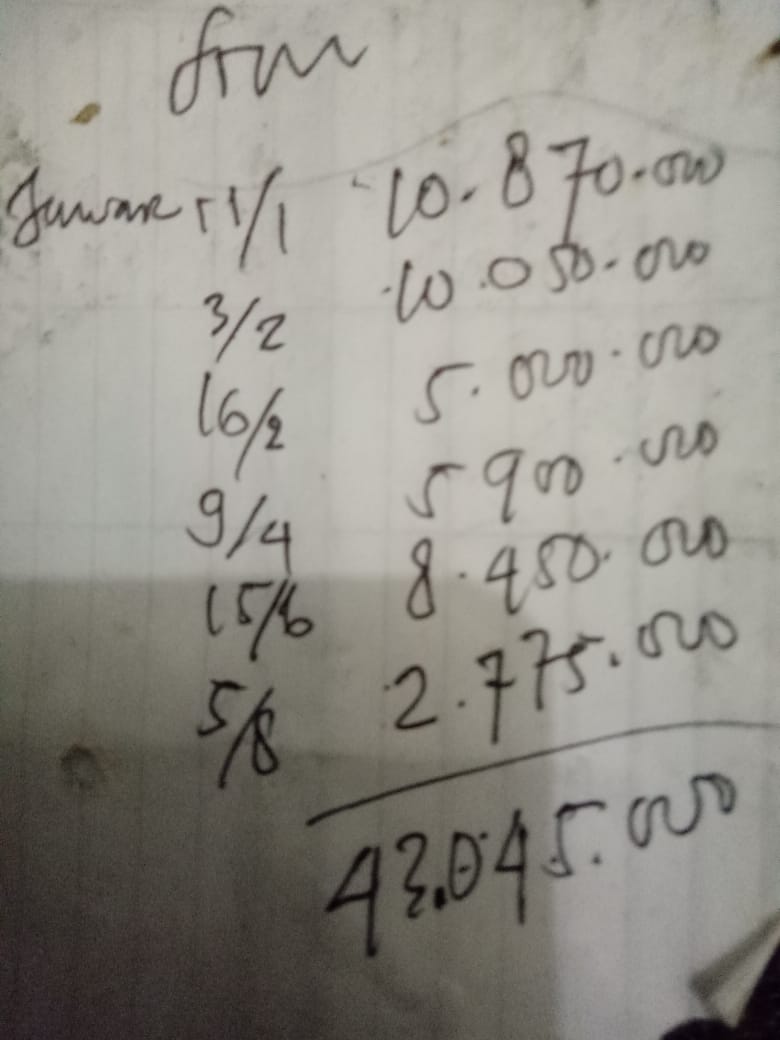 11/1 10.870.000
3/2 10.050.000
16/2 5.000.000
9/4 5900.000
15/6 8.450.000
5/8 2.775.000
43.045.000